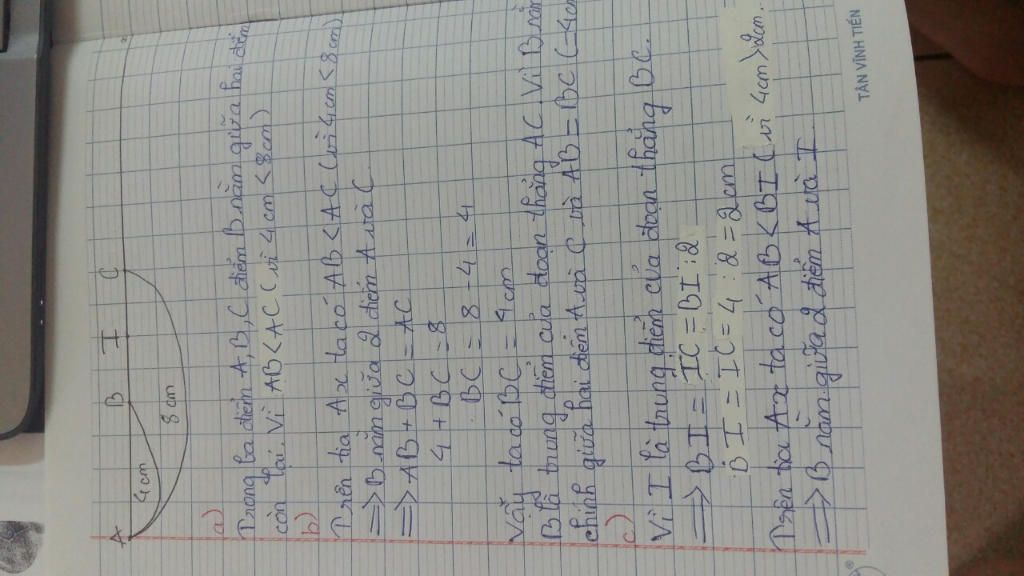 A B I C
4cm
8cm
a)
Trong ba điểm A, B, C điểm B nằm giữa hai điểm
còn lại. Vì AB < AC (vì 4cm < 8cm)
b)
Trên tia Ax ta có AB < AC (vì 4cm < 8cm)
=> B nằm giữa 2 điểm A và C
=> AB + BC = AC
4 + BC = 8
BC = 8 - 4 = 4
Vậy ta có BC = 4cm
B là trung điểm của đoạn thẳng AC. Vì B nằm
chính giữa hai điểm A và C và AB = BC (=4cm
c)
Vì I là trung điểm của đoạn thẳng BC.
=> BI = IC = BI : 2
BI = IC = 4 : 2 = 2cm
Trên tia Ax ta có AB < BI (vì 4cm > 2cm.
=> B nằm giữa 2 điểm A và I
TÂN VĨNH TIẾN